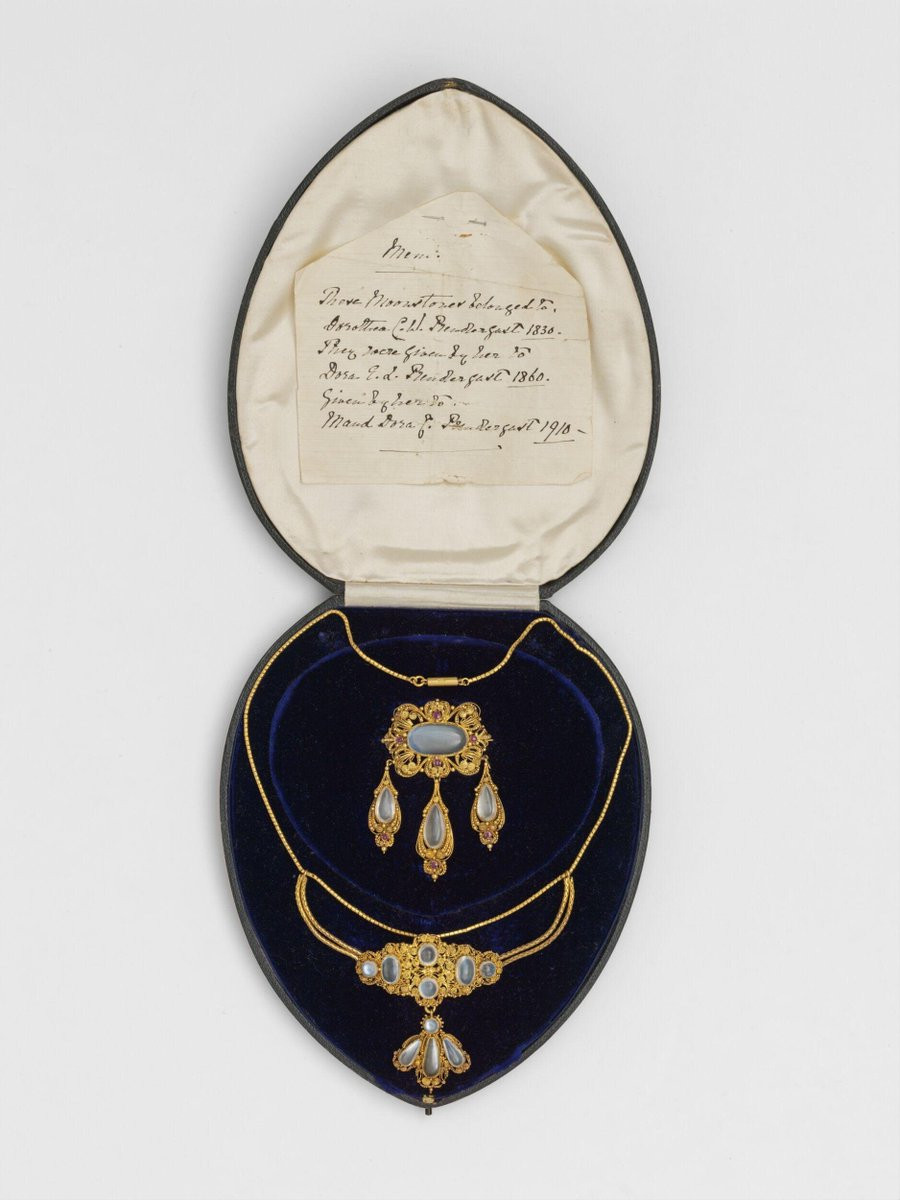 Mem:
These Moonstones belonged to,
Dorothea C. W. Prendergast 1830.
They were given by her to
Dora E. L. Prendergast 1860.
Given by her to
Maud Dora Prendergast 1910 –